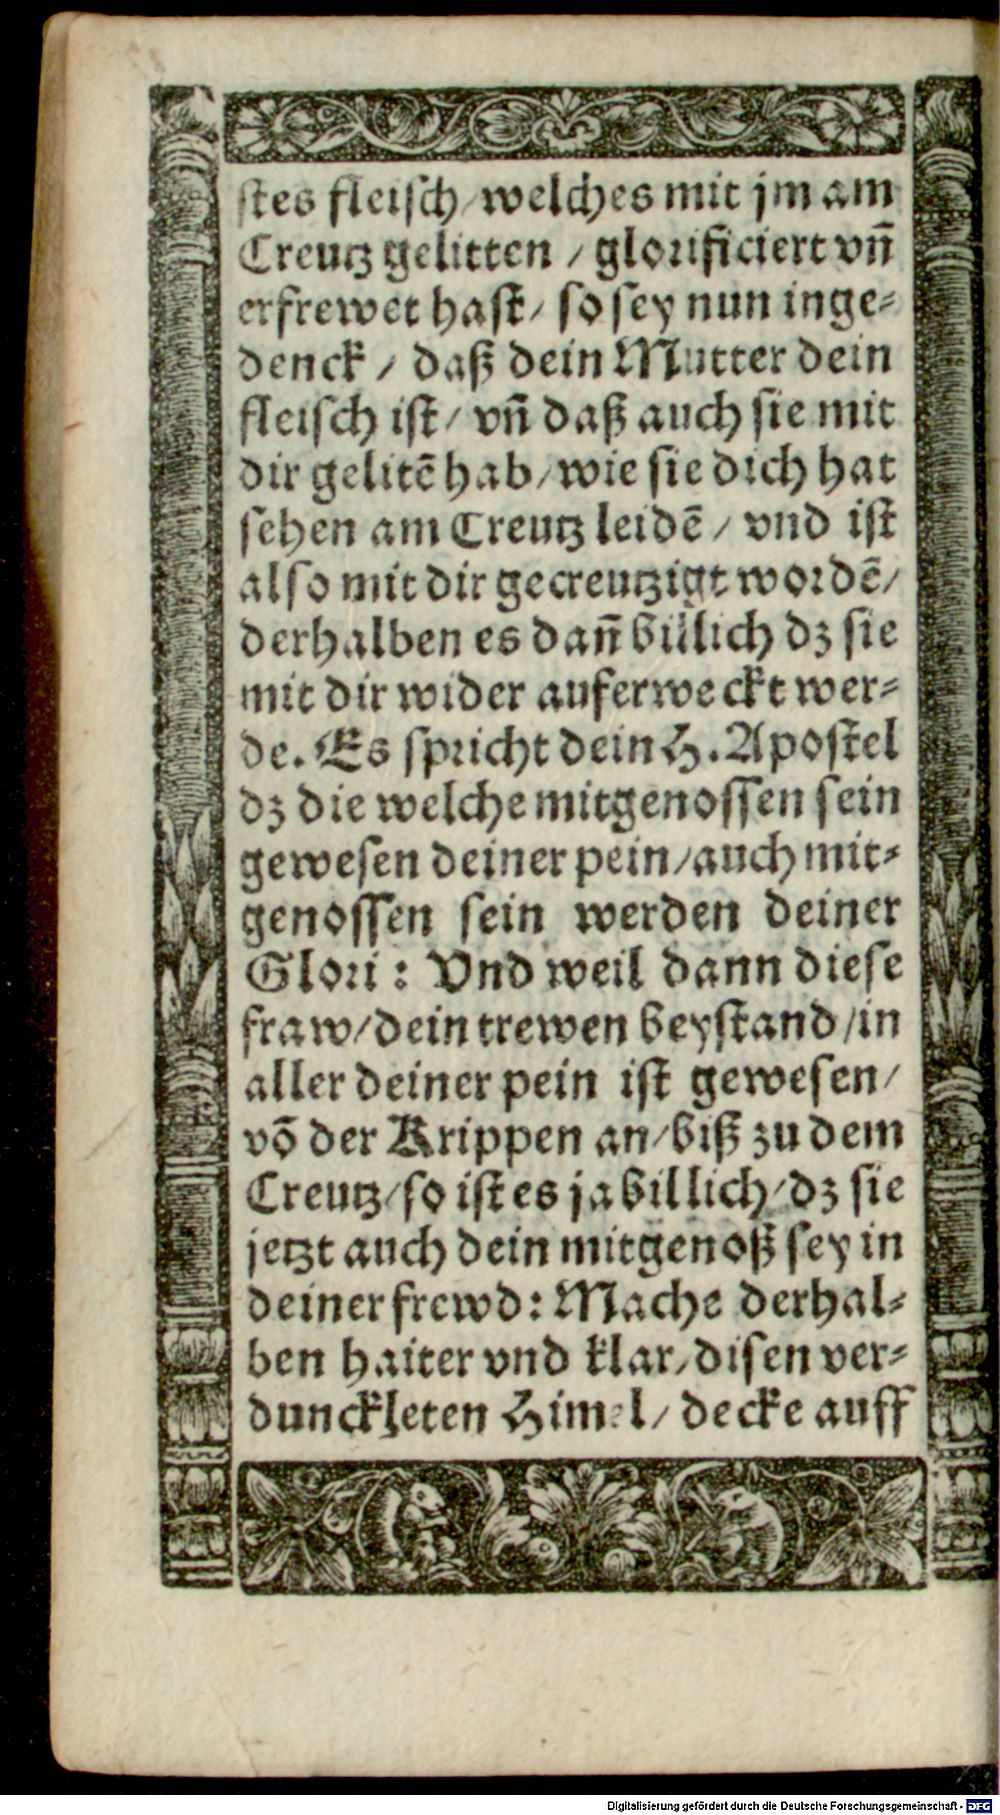 stes fleisch/welches mit jm am
Creutz gelitten / glorificiert vñ
erfrewet hast/ so sey nun inge⸗
denck / daß dein Mutter dein
fleisch ist/ vñ daß auch sie mit
dir gelitẽ hab/wie sie dich hat
sehen am Creutz leidẽ / vnd ist
also mit dir gecreutzigt wordẽ/
derhalben es dañ billich dz sie
mit dir wider auferweckt wer⸗
de. Es spricht dein H. Apostel
dz die welche mitgenossen sein
gewesen deiner pein/auch mit⸗
genossen sein werden deiner
Glori: Vnd weil dann diese
fraw/dein trewen beystand/in
aller deiner pein ist gewesen/
võ der Krippen an/biß zu dem
Creutz/so ist es ja billich/dz sie
jetzt auch dein mitgenoß sey in
deiner frewd: Mache derhal⸗
ben haiter vnd klar/disen ver⸗
dunckleten Himel/ decke auff
Digitalisierung gefördert durch die Deutsche Forschungsgemeinschaft - DFG